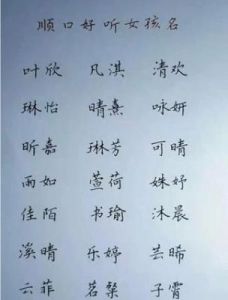 顺口好听女孩名
叶欣 凡淇 清欢
琳怡 晴熹 咏妍
昕嘉 琳芳 可晴
雨如 萱荷 姝妤
佳陌 书瑜 沐晨
溪晴 乐婷 芸晞
云菲 若棠 子霄